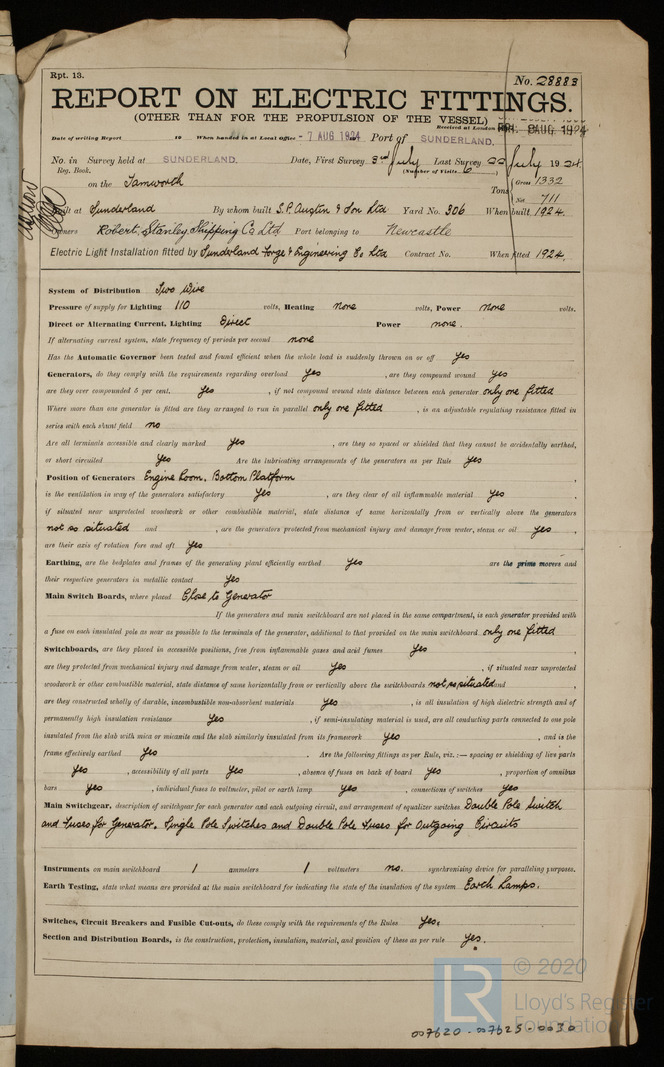 Rpt. 13.
No. 28883
REPORT ON ELECTRIC FITTINGS.
(OTHER THAN FOR THE PROPULSION OF THE VESSEL)
Received at London
Date of writing Report 19 When handed in at Local Office - 7 AUG 1924 Port of SUNDERLAND.
No. in Survey held at SUNDERLAND. Date, First Survey 3rd July Last Survey 22 July 1924
Reg. Book. (Number of Visits 6)
on the Tamworth Tons Gross 1332
Net 711
Built at Sunderland By whom built S.P. Austin & Son Ltd Yard No. 306 When built 1924.
Owners Robert Stanley Shipping Co Ltd Port belonging to Newcastle
Electric Light Installation fitted by Sunderland Forge & Engineering Co Ltd Contract No. When fitted 1924.
System of Distribution Two Wire
Pressure of supply for Lighting 110 volts, Heating none volts, Power none volts.
Direct or Alternating Current, Lighting Direct Power none.
If alternating current, state frequency of periods per second none
Has the Automatic Governor been tested and found efficient when the whole load is suddenly thrown on or off yes
Generators, do they comply with the requirements regarding overload yes, are they compound wound yes
are they over compounded 5 per cent. yes, if not compound wound state distance between each generator only one fitted
Where more than one generator is fitted are they arranged to run in parallel only one fitted, is an adjustable regulating resistance fitted in
series with each shunt field no
Are all terminals accessible and clearly marked yes, are they so spaced or shielded that they cannot be accidentally earthed,
or short circuited yes Are the lubricating arrangements of the generators as per Rule yes
Position of Generators Engine Room. Bottom Platform
is the ventilation in way of the generators satisfactory yes, are they clear of all inflammable material yes
if situated near unprotected woodwork or other combustible material, state distance of same horizontally from or vertically above the generators
not so situated and , are the generators protected from mechanical injury and damage from water, steam or oil yes,
are their axis of rotation fore and aft yes
Earthing, are the bedplates and frames of the generating plant efficiently earthed yes are the prime movers and
their respective generators in metallic contact yes
Main Switch Boards, where placed Close to Generator
If the generators and main switchboard are not placed in the same compartment, is each generator provided with
a fuse on each insulated pole as near as possible to the terminals of the generator, additional to that provided on the main switchboard only one fitted
Switchboards, are they placed in accessible positions, free from inflammable gases and acid fumes yes,
are they protected from mechanical injury and damage from water, steam or oil yes, if situated near unprotected
woodwork or other combustible material, state distance of same horizontally from or vertically above the switchboards not so situated and
are they constructed wholly of durable, incombustible non-absorbent materials yes, is all insulation of high dielectric strength and of
permanently high insulation resistance yes, if semi-insulating material is used, are all conducting parts connected to one pole
insulated from the slab with mica or micanite and the slab similarly insulated from its framework yes, and is the
frame effectively earthed yes. Are the following fittings as per Rule, viz.:— spacing or shielding of live parts
yes, accessibility of all parts yes, absence of fuses on back of board yes, proportion of omnibus
bars yes, individual fuses to voltmeter, pilot or earth lamp yes, connections of switches yes
Main Switchgear, description of switchgear for each generator and each outgoing circuit, and arrangement of equalizer switches Double Pole Switch
and Fuses for Generator. Single Pole Switches and Double Pole Fuses for Outgoing Circuits
Instruments on main switchboard 1 ammeters 1 voltmeters no. synchronising device for paralleling purposes.
Earth Testing, state what means are provided at the main switchboard for indicating the state of the insulation of the system Earth Lamps.
Switches, Circuit Breakers and Fusible Cut-outs, do these comply with the requirements of the Rules Yes,
Section and Distribution Boards, is the construction, protection, insulation, material, and position of these as per rule yes.
© 2020
LR
Lloyd's Register
Foundation
007620-007625-0030